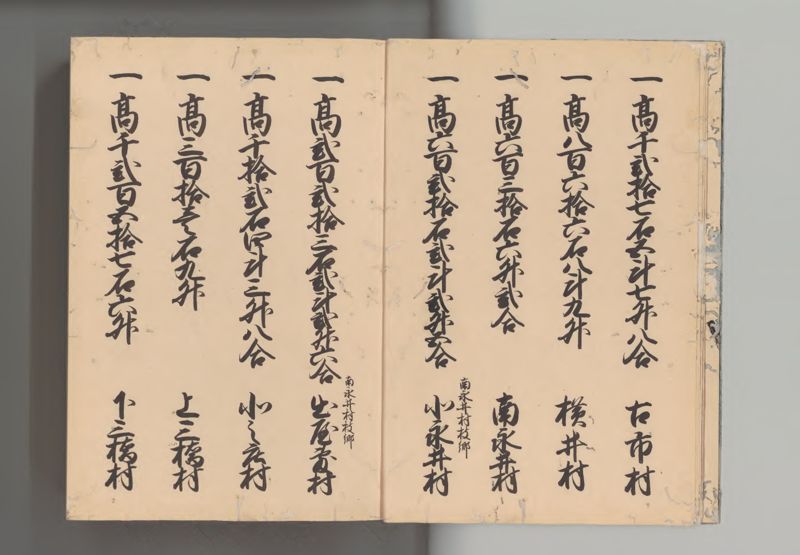 一高千弐拾七石五斗七升八合 古市村
一高八百六拾六石八斗九升 横井村
一高六百三拾石六升弐合 南永井村
南永井村枝郷
一高六百弐拾石弐斗弐升五合 北永井村
南永井村枝郷
一高弐百弐拾三石弐斗弐升六合 出屋敷村
一高千拾弐石四斗三升八合 北之庄村
一高三百拾壱石九升 上三橋村
一高千弐百五拾七石六升 下三橋村